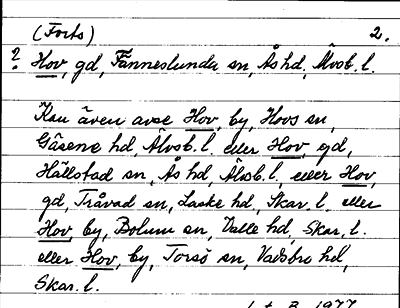 (Forts) 2.
? Hov, gd, Fänneslunda sn, Ås hd, Älvsb. l.
Kan även avse Hov, by, Hovs sn,
Gäsene hd, Älvsb. l. eller Hov, gd,
Hällstad sn, Ås hd, Älvsb. l., eller Hov,
gd, Tråvad sn, Laske hd, Skar. l. eller
Hov, by, Bolum sn, Valle hd, Skar. l.
eller Hov, by, Torsö sn, Vadsbo hd,
Skar. l.